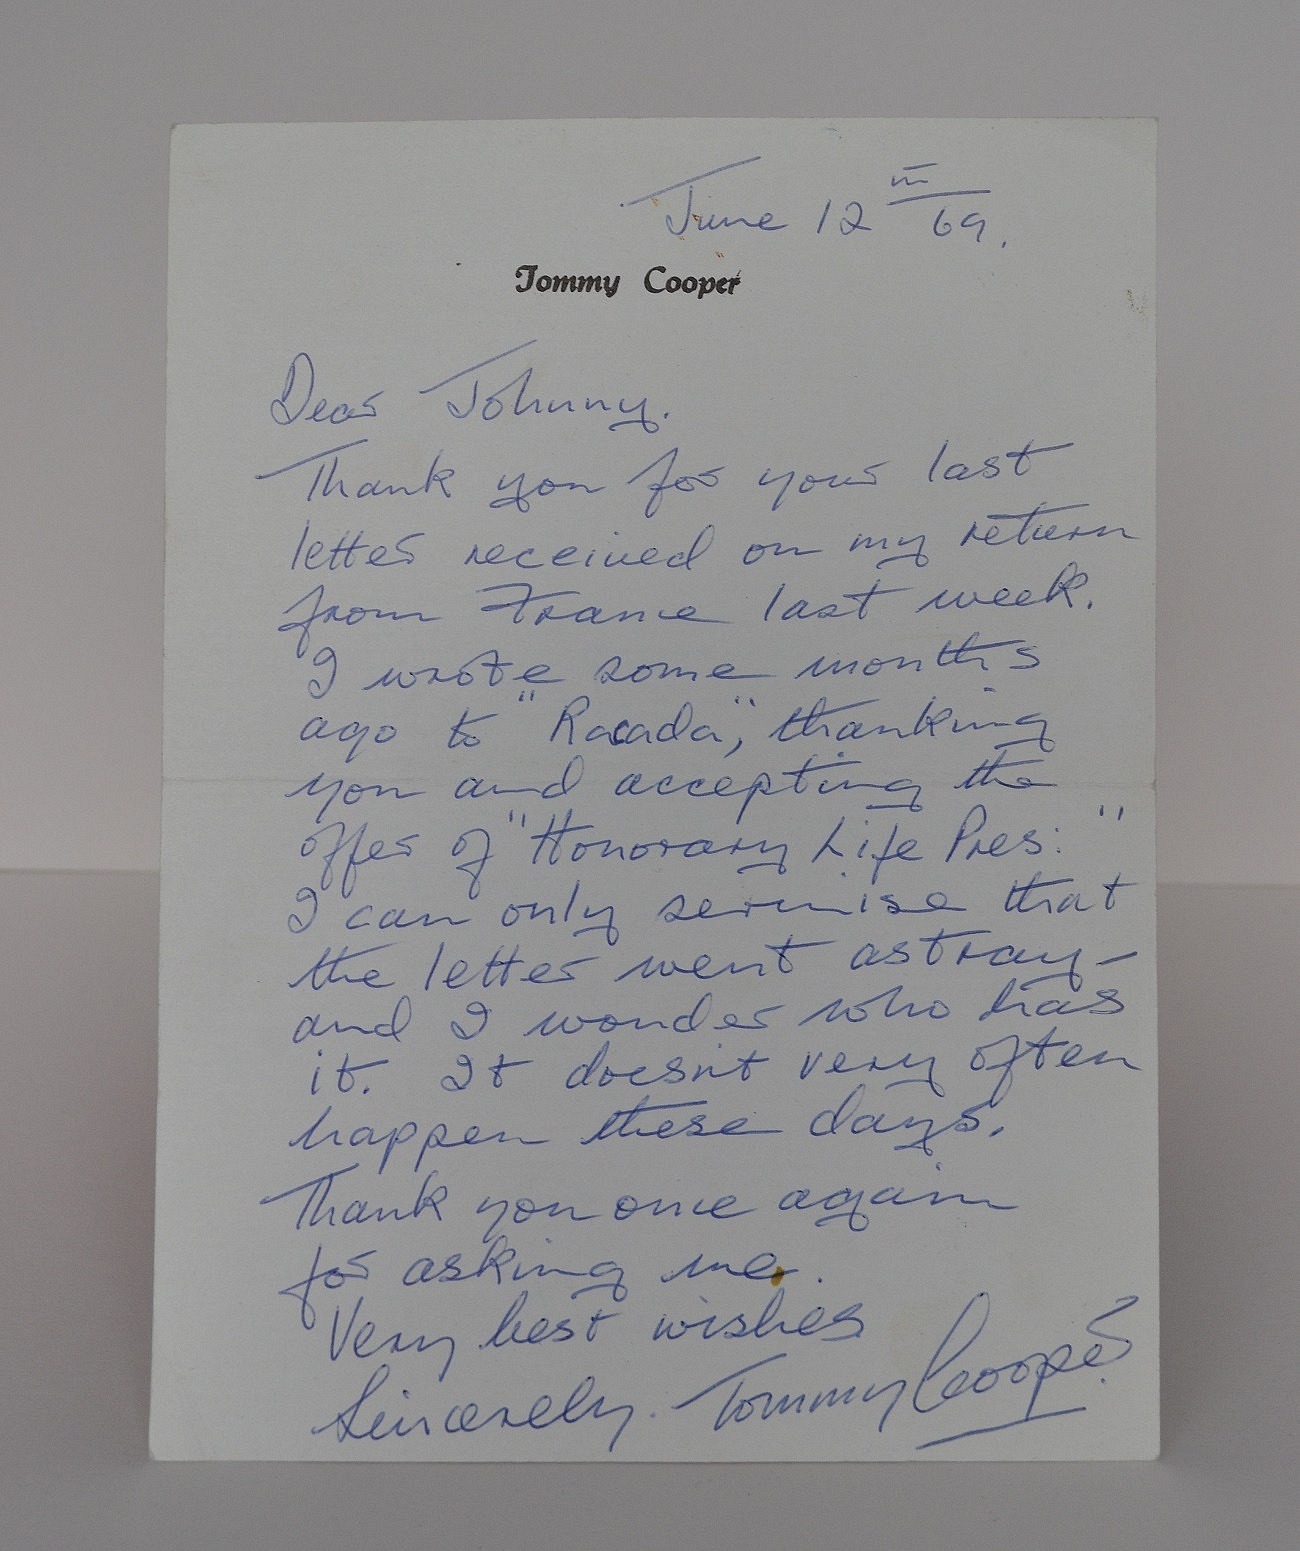 June 12th 69.
Tommy Cooper
Dear Johnny.
Thank you for your last
letter received on my return
from France last week.
I wrote some months
ago to "Racada", thanking
you and accepting the
offer of "Honorary Life Pres: "
I can only sermise that
the letter went astray -
and I wonder who has
it. It doesn't very often
happen these days.
Thank you once again
for asking me.
Very best wishes
Sincerely. Tommy Cooper